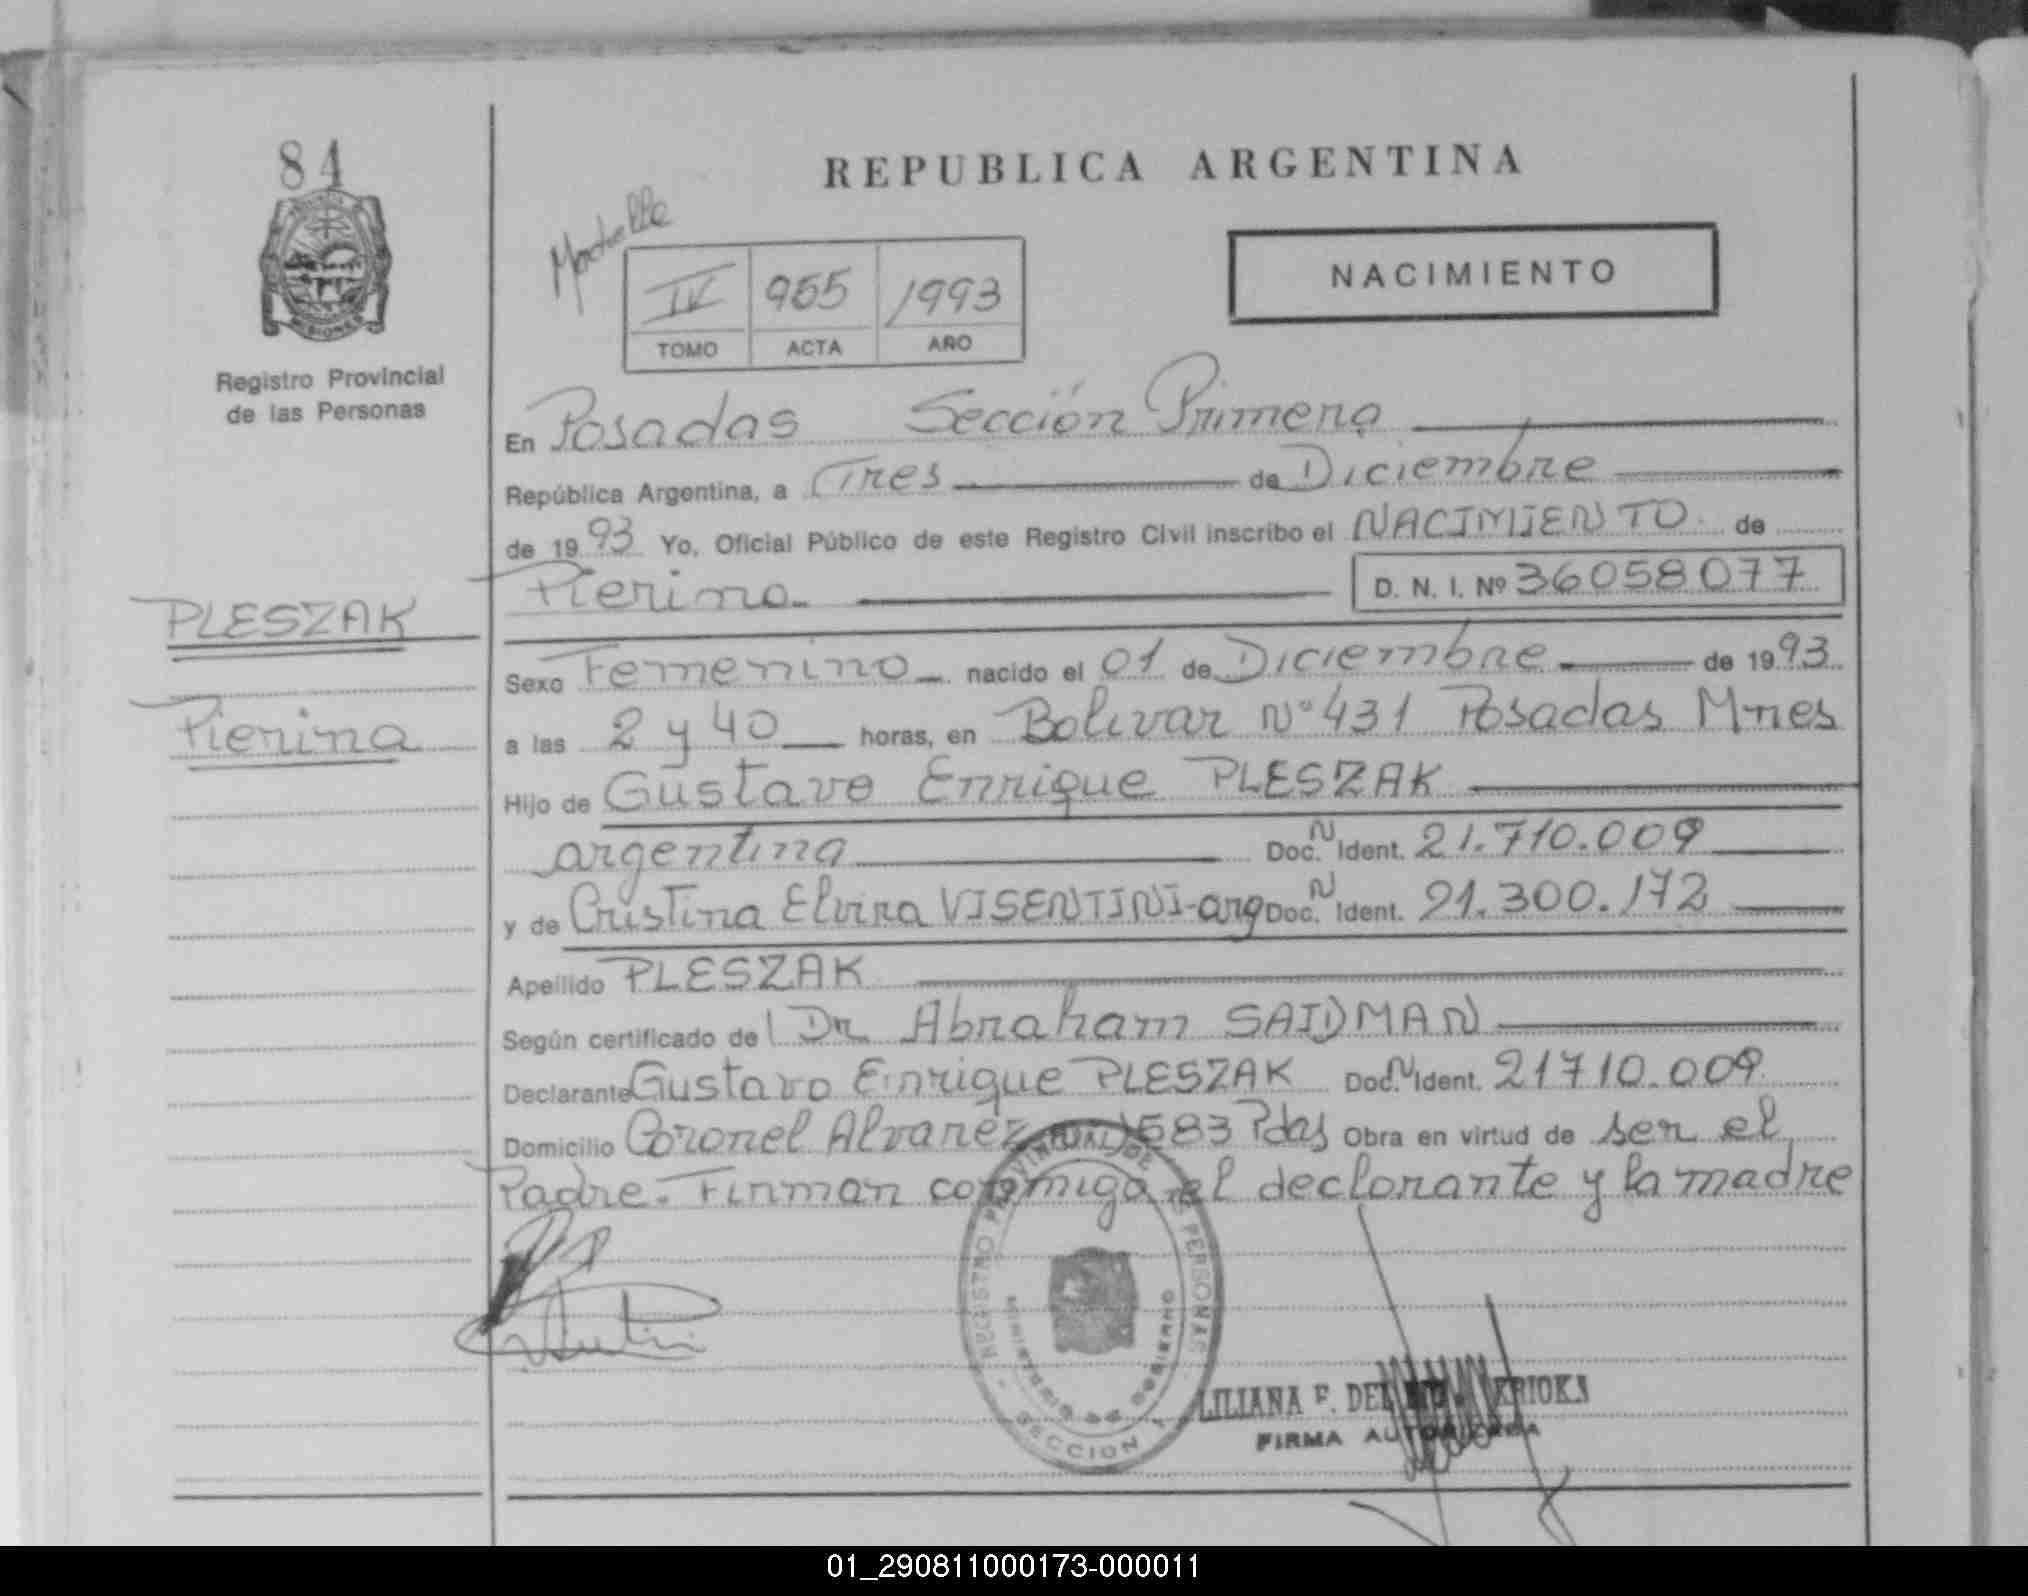 84
REPUBLICA ARGENTINA
NACIMIENTO
IV 955 1993
TOMO ACTA AÑO
MISIONES
Registro Provincial
de las Personas
En Posadas Sección Primera
República Argentina, a Tres de Diciembre
de 1993 Yo, Oficial Público de este Registro Civil inscribo el NACIMIENTO de
Pierina D. N. I. Nº 36058077
PLESZAK
Pierina
Sexo Femenino nacido el 01 de Diciembre de 1993
a las 2 y 40 horas, en Bolivar Nº 431 Posadas Mnes
Hijo de Gustavo Enrique PLESZAK
argentina Doc. N Ident. 21.710.009
y de Cristina Elvira VISENTINI-arg Doc. N Ident. 21.300.172
Apellido PLESZAK
Según certificado del Dr Abraham SAIDMAN
Declarante Gustavo Enrique PLESZAK Doc. N Ident. 21710.009
Domicilio Coronel Alvarez 1583 Pdas Obra en virtud de ser el
Padre. Firman conmigo el declarante y la madre
REGISTRO PROVINCIAL DE LAS PERSONAS
MINISTERIO DE GOBIERNO
SECCION 1
LILIANA F. DEL
FIRMA AUTORIZADA
01_290811000173-000011